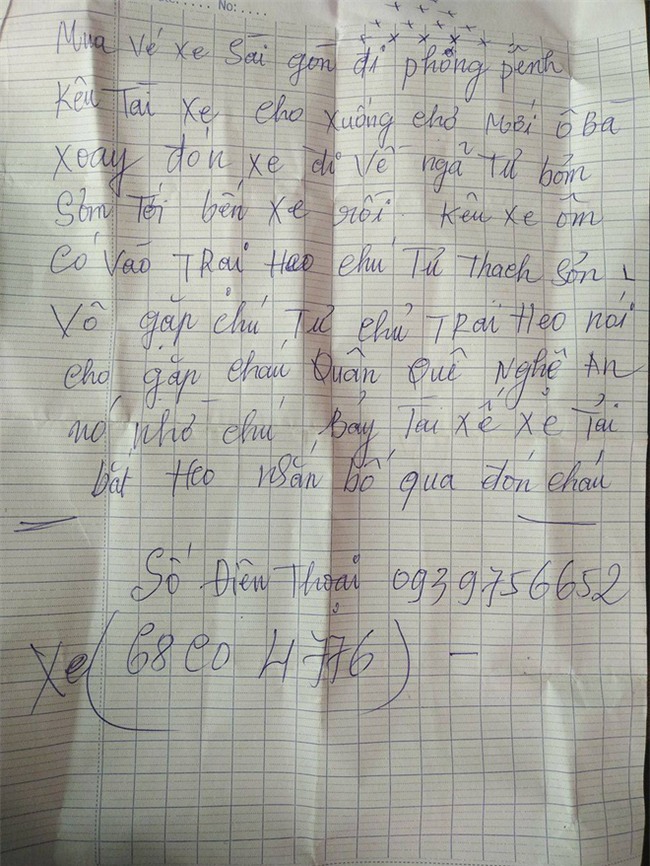 No:....
Mua vé xe Sài gòn đi phông pênh
Kêu Tài xe cho xuống chợ Mới ô Bà
Xoay đón xe đi về ngã Tư bôm
Sơm Tới bến xe rồi. Kêu xe ôm
Có vào TRại Heo chú Tư Thach Sơn
Vô gặp chú Tư chủ TRại Heo nói
cho gặp cháu Quân Quê Nghệ An
nó nhờ chú Bảy Tài xế xe Tải
bắt Heo nhắn bố qua đón cháu
Số Điện Thoại 0939756652
Xe (68C0 4776) –